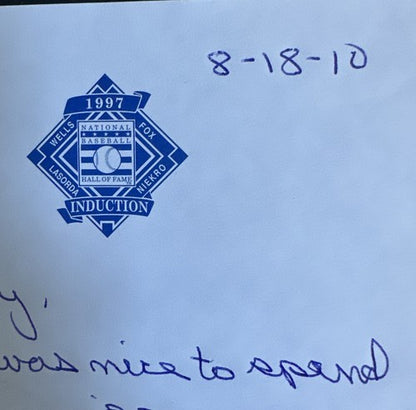 8-18-10
1997
WELLS
FOX
NATIONAL
BASEBALL
HALL OF FAME
LASORDA
NIEKRO
INDUCTION
y,
was nice to spend